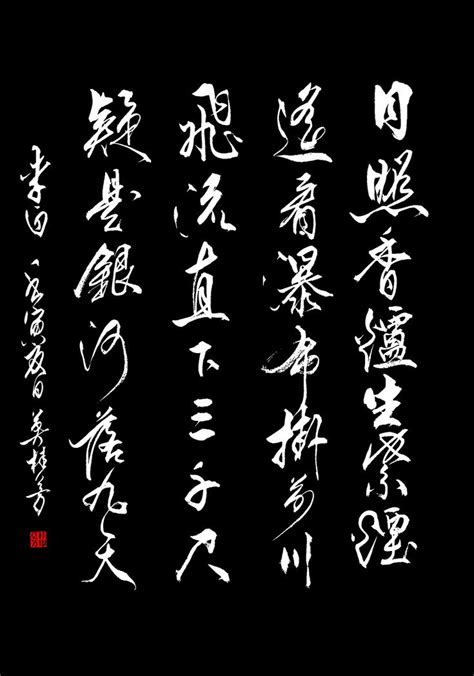 日照香爐生紫煙
遙看瀑布掛前川
飛流直下三千尺
疑是銀河落九天
李白 庚寅夏日